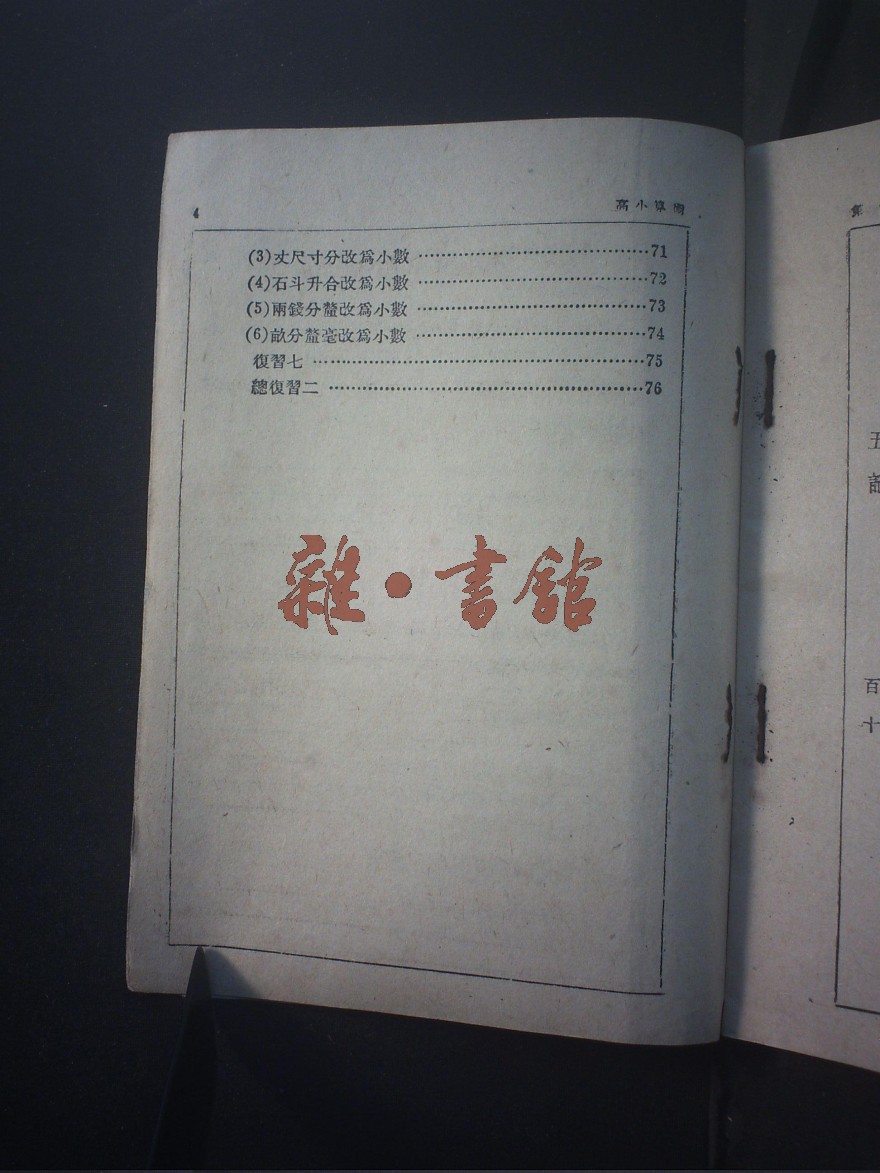 4
高小算術
(3)丈尺寸分改爲小數 ……………………………71
(4)石斗升合改爲小數 ……………………………72
(5)兩錢分釐改爲小數 ……………………………73
(6)畝分釐毫改爲小數 ……………………………74
復習七 ……………………………………………75
總復習二 …………………………………………76
雜•書館
五
百
十